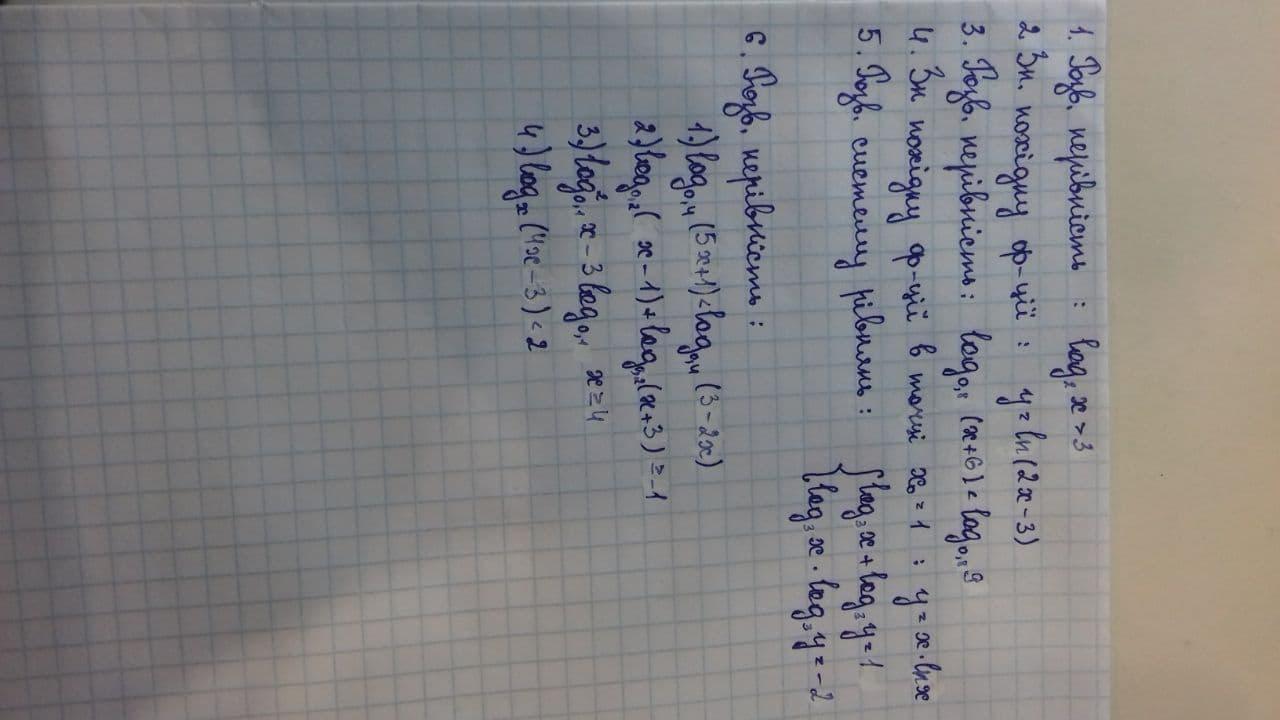 1. Розв. нерівність : log₂ x > 3
2 Зн. похідну ф-ції : y = ln(2x-3)
3. Розв. нерівність : log₀,₈ (x+6) < log₀,₈ 9
4. Зн. похідну ф-ції в точці x₀ = 1 : y = x · ln x
5. Розв. систему рівнянь : { log₃ x + log₃ y = 1
log₃ x · log₃ y = -2
6. Розв. нерівність :
1) log₀,₄ (5x+1) < log₀,₄ (3-2x)
2) log₀,₂ ( x-1) + log₀,₂ (x+3) ≥ -1
3) log²₀,₁ x - 3 log₀,₁ x ≥ 4
4.) logₓ (4x-3) < 2